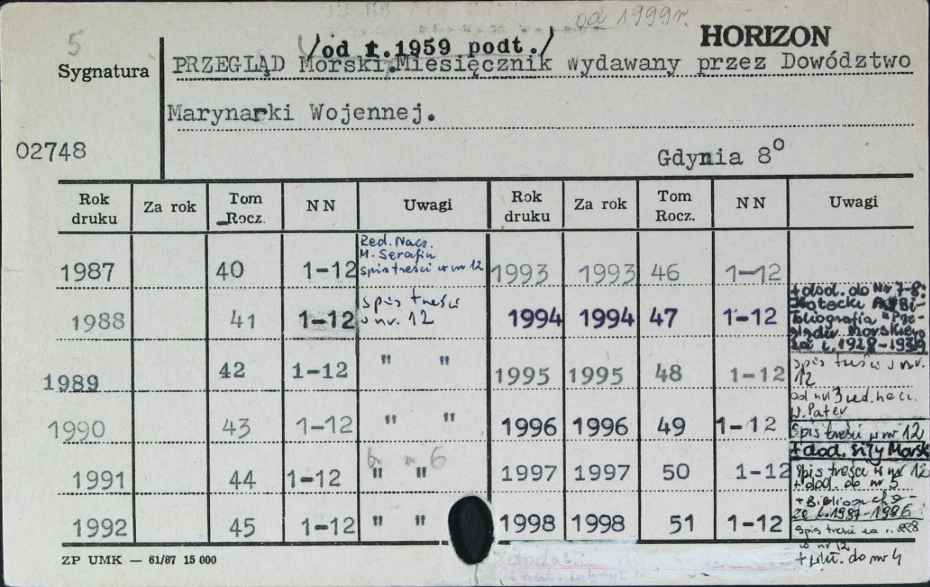 od 1999r.
5 /od r.1959 podt./ HORIZON
Sygnatura PRZEGLĄD Morski.Miesięcznik wydawany przez Dowództwo
Marynarki Wojennej.
02748
Gdynia 8°
Rok druku Za rok Tom Rocz. NN Uwagi Rok druku Za rok Tom Rocz. NN Uwagi
1987 40 1-12 Red. Nacz. M. Serafin spis treści w nr 12 1993 1993 46 1-12
1988 41 1-12 spis treści w nr. 12 1994 1994 47 1-12 + dod. do Nr 7-8: Bibliografia "Przeglądu Morskiego za l. 1928-1939
1989 42 1-12 " " 1995 1995 48 1-12 spis treści w nr. 12
od nr 3 red. nacz. W. Pater
1990 43 1-12 " " 1996 1996 49 1-12 Spis treści w nr 12
+ dod. Siły Morsk
1991 44 1-12 " " 6 1997 1997 50 1-12 spis treści w nr 12
+ dod. do nr 5
1992 45 1-12 " " 1998 1998 51 1-12 za l. 1987-1996
spis treści za r. 1998
w nr 12
do nr 4
ZP UMK — 61/87 15 000